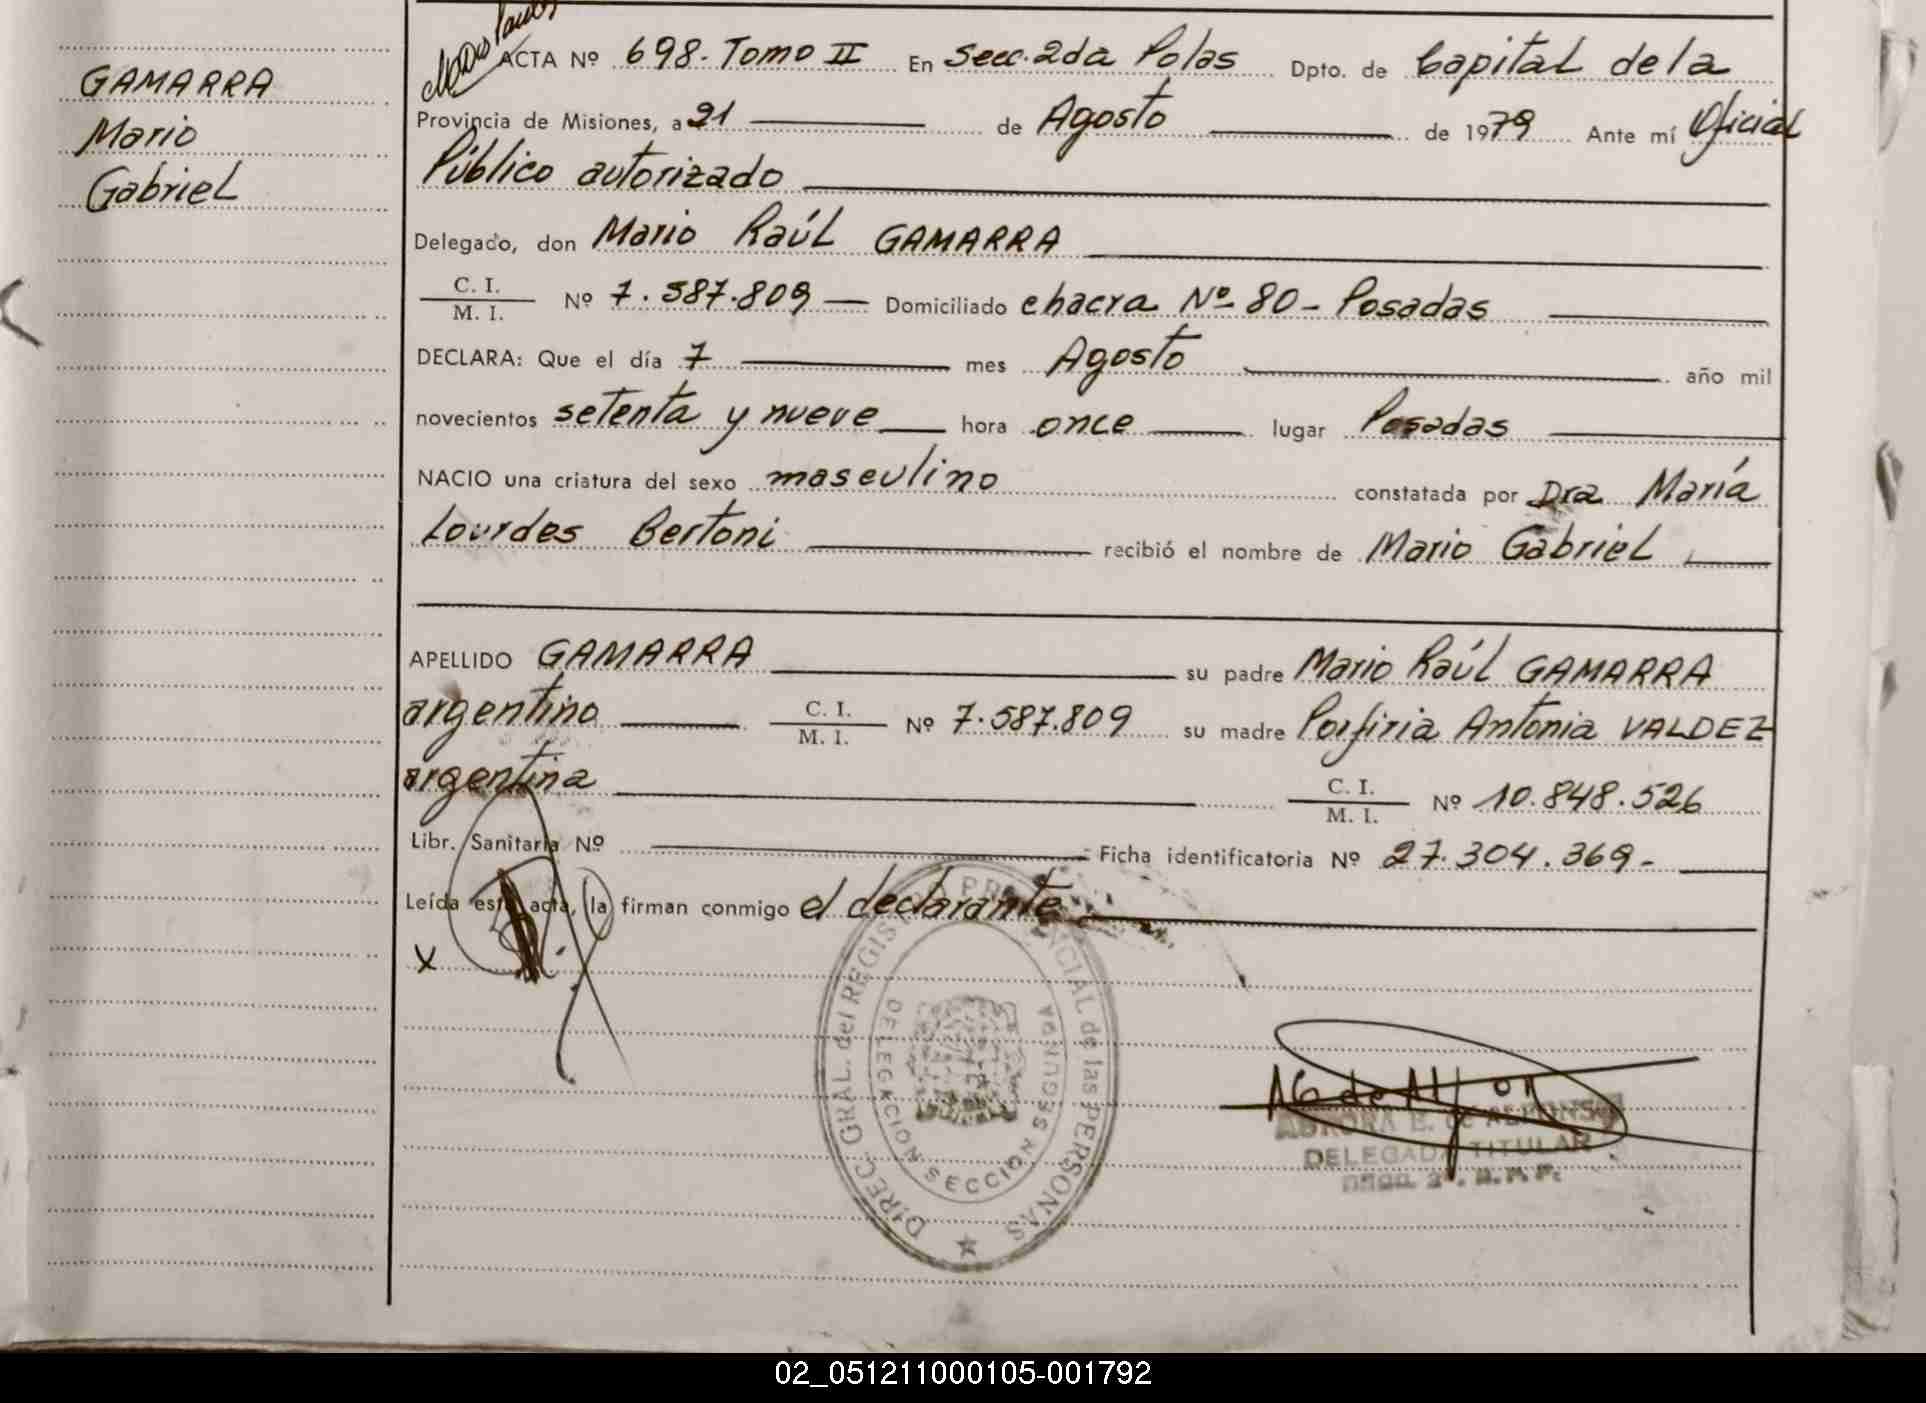 GAMARRA
Mario
Gabriel
ACTA Nº 698. Tomo II En Secc. 2da Pdas Dpto. de Capital de la
Provincia de Misiones, a 21 de Agosto de 1979 Ante mí Oficial
Público autorizado
Delegado, don Mario Raúl GAMARRA
C. I.
M. I. Nº 7.587.809 — Domiciliado chacra Nº 80 - Posadas
DECLARA: Que el día 7 mes Agosto año mil
novecientos setenta y nueve hora once lugar Posadas
NACIO una criatura del sexo masculino constatada por Dra María
Lourdes Bertoni recibió el nombre de Mario Gabriel
APELLIDO GAMARRA su padre Mario Raúl GAMARRA
argentino C. I.
M. I. Nº 7.587.809 su madre Porfiria Antonia VALDEZ
argentina C. I.
M. I. Nº 10.848.526
Libr. Sanitaria Nº Ficha identificatoria Nº 27.304.369-
Leída esta acta, la firman conmigo el declarante
x
DIREC. GRAL. del REGISTRO PROVINCIAL de las PERSONAS
DELEGACION SECCION SEGUNDA
AURORA E. de ALFONSO
DELEGADA TITULAR
02_051211000105-001792